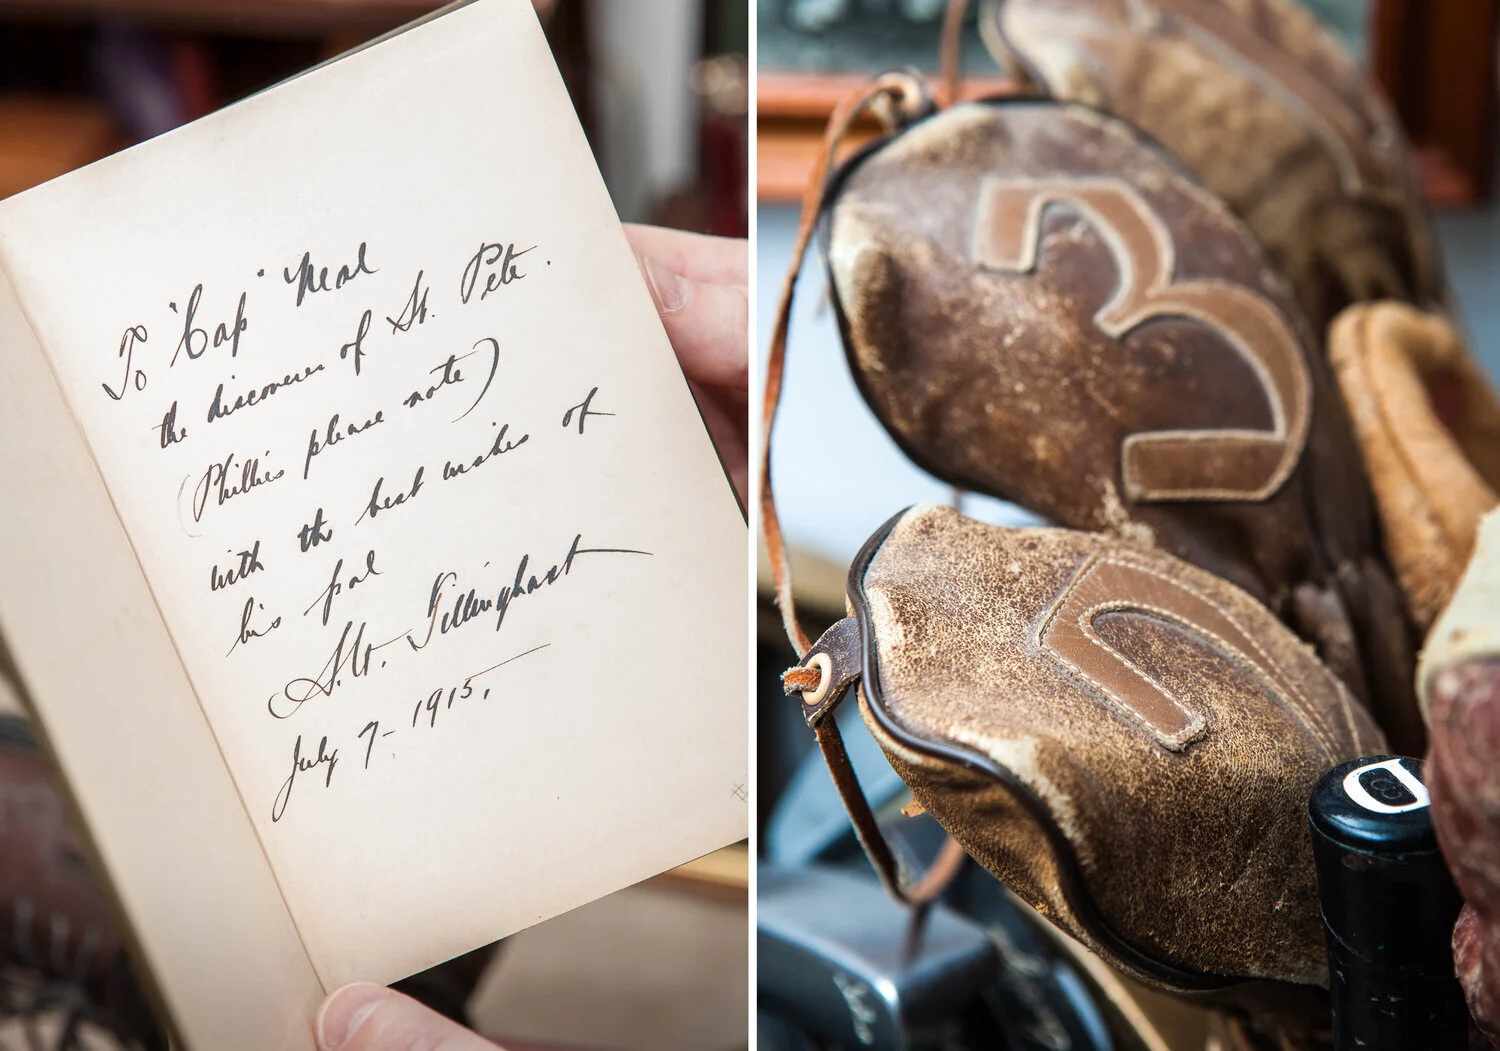 To "Cap" Neal
the discoverer of St. Pete.
(Phillies please note)
with the best wishes of
his pal
A.W. Tillinghast
July 7-1915.
3